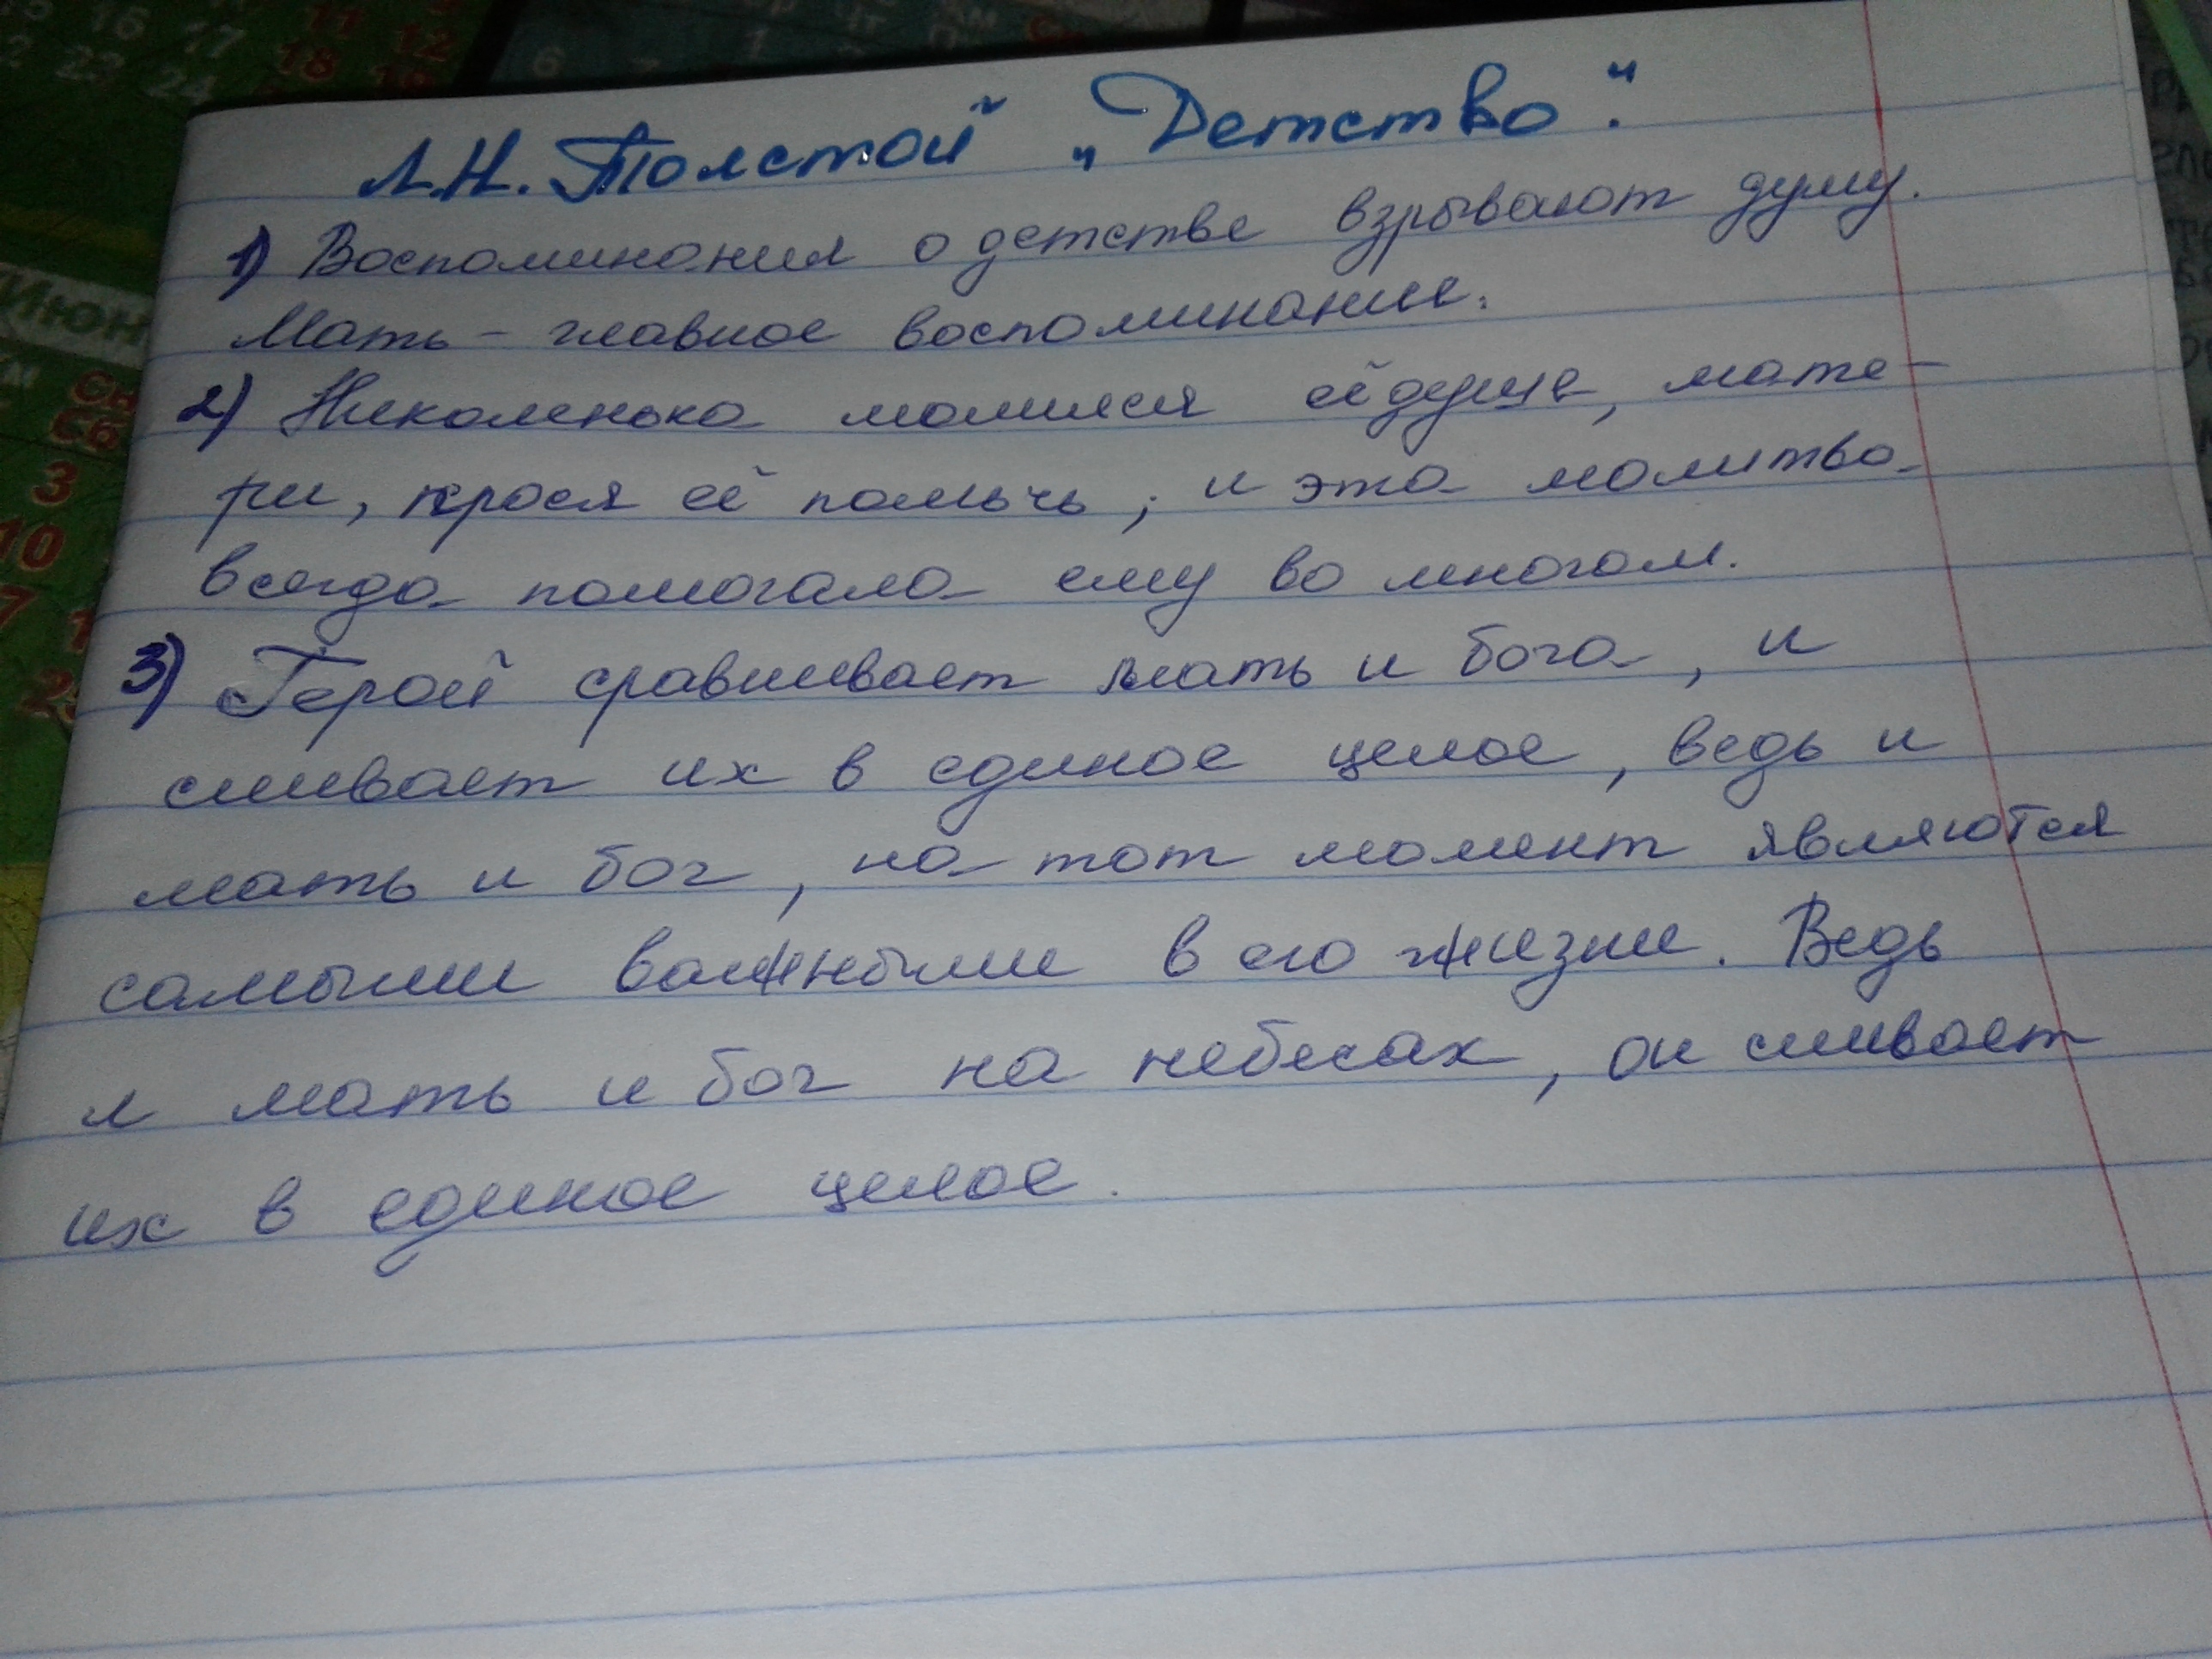 Л.Н. Толстой „Детство“.
1) Воспоминания о детстве взрывают думу.
Мать – главное воспоминание.
2) Николенька молился её душе, мате-
ри, прося её помочь; и эта молитва
всегда помогала ему во многом.
3) Герой сравнивает мать и бога, и
сливает их в единое целое, ведь и
мать и бог, на тот момент являются
самыми важными в его жизни. Ведь
и мать и бог на небесах, он сливает
их в единое целое.
16 17 11 12
22 23 24 18 19
6 1
Июн
Сб
3
10